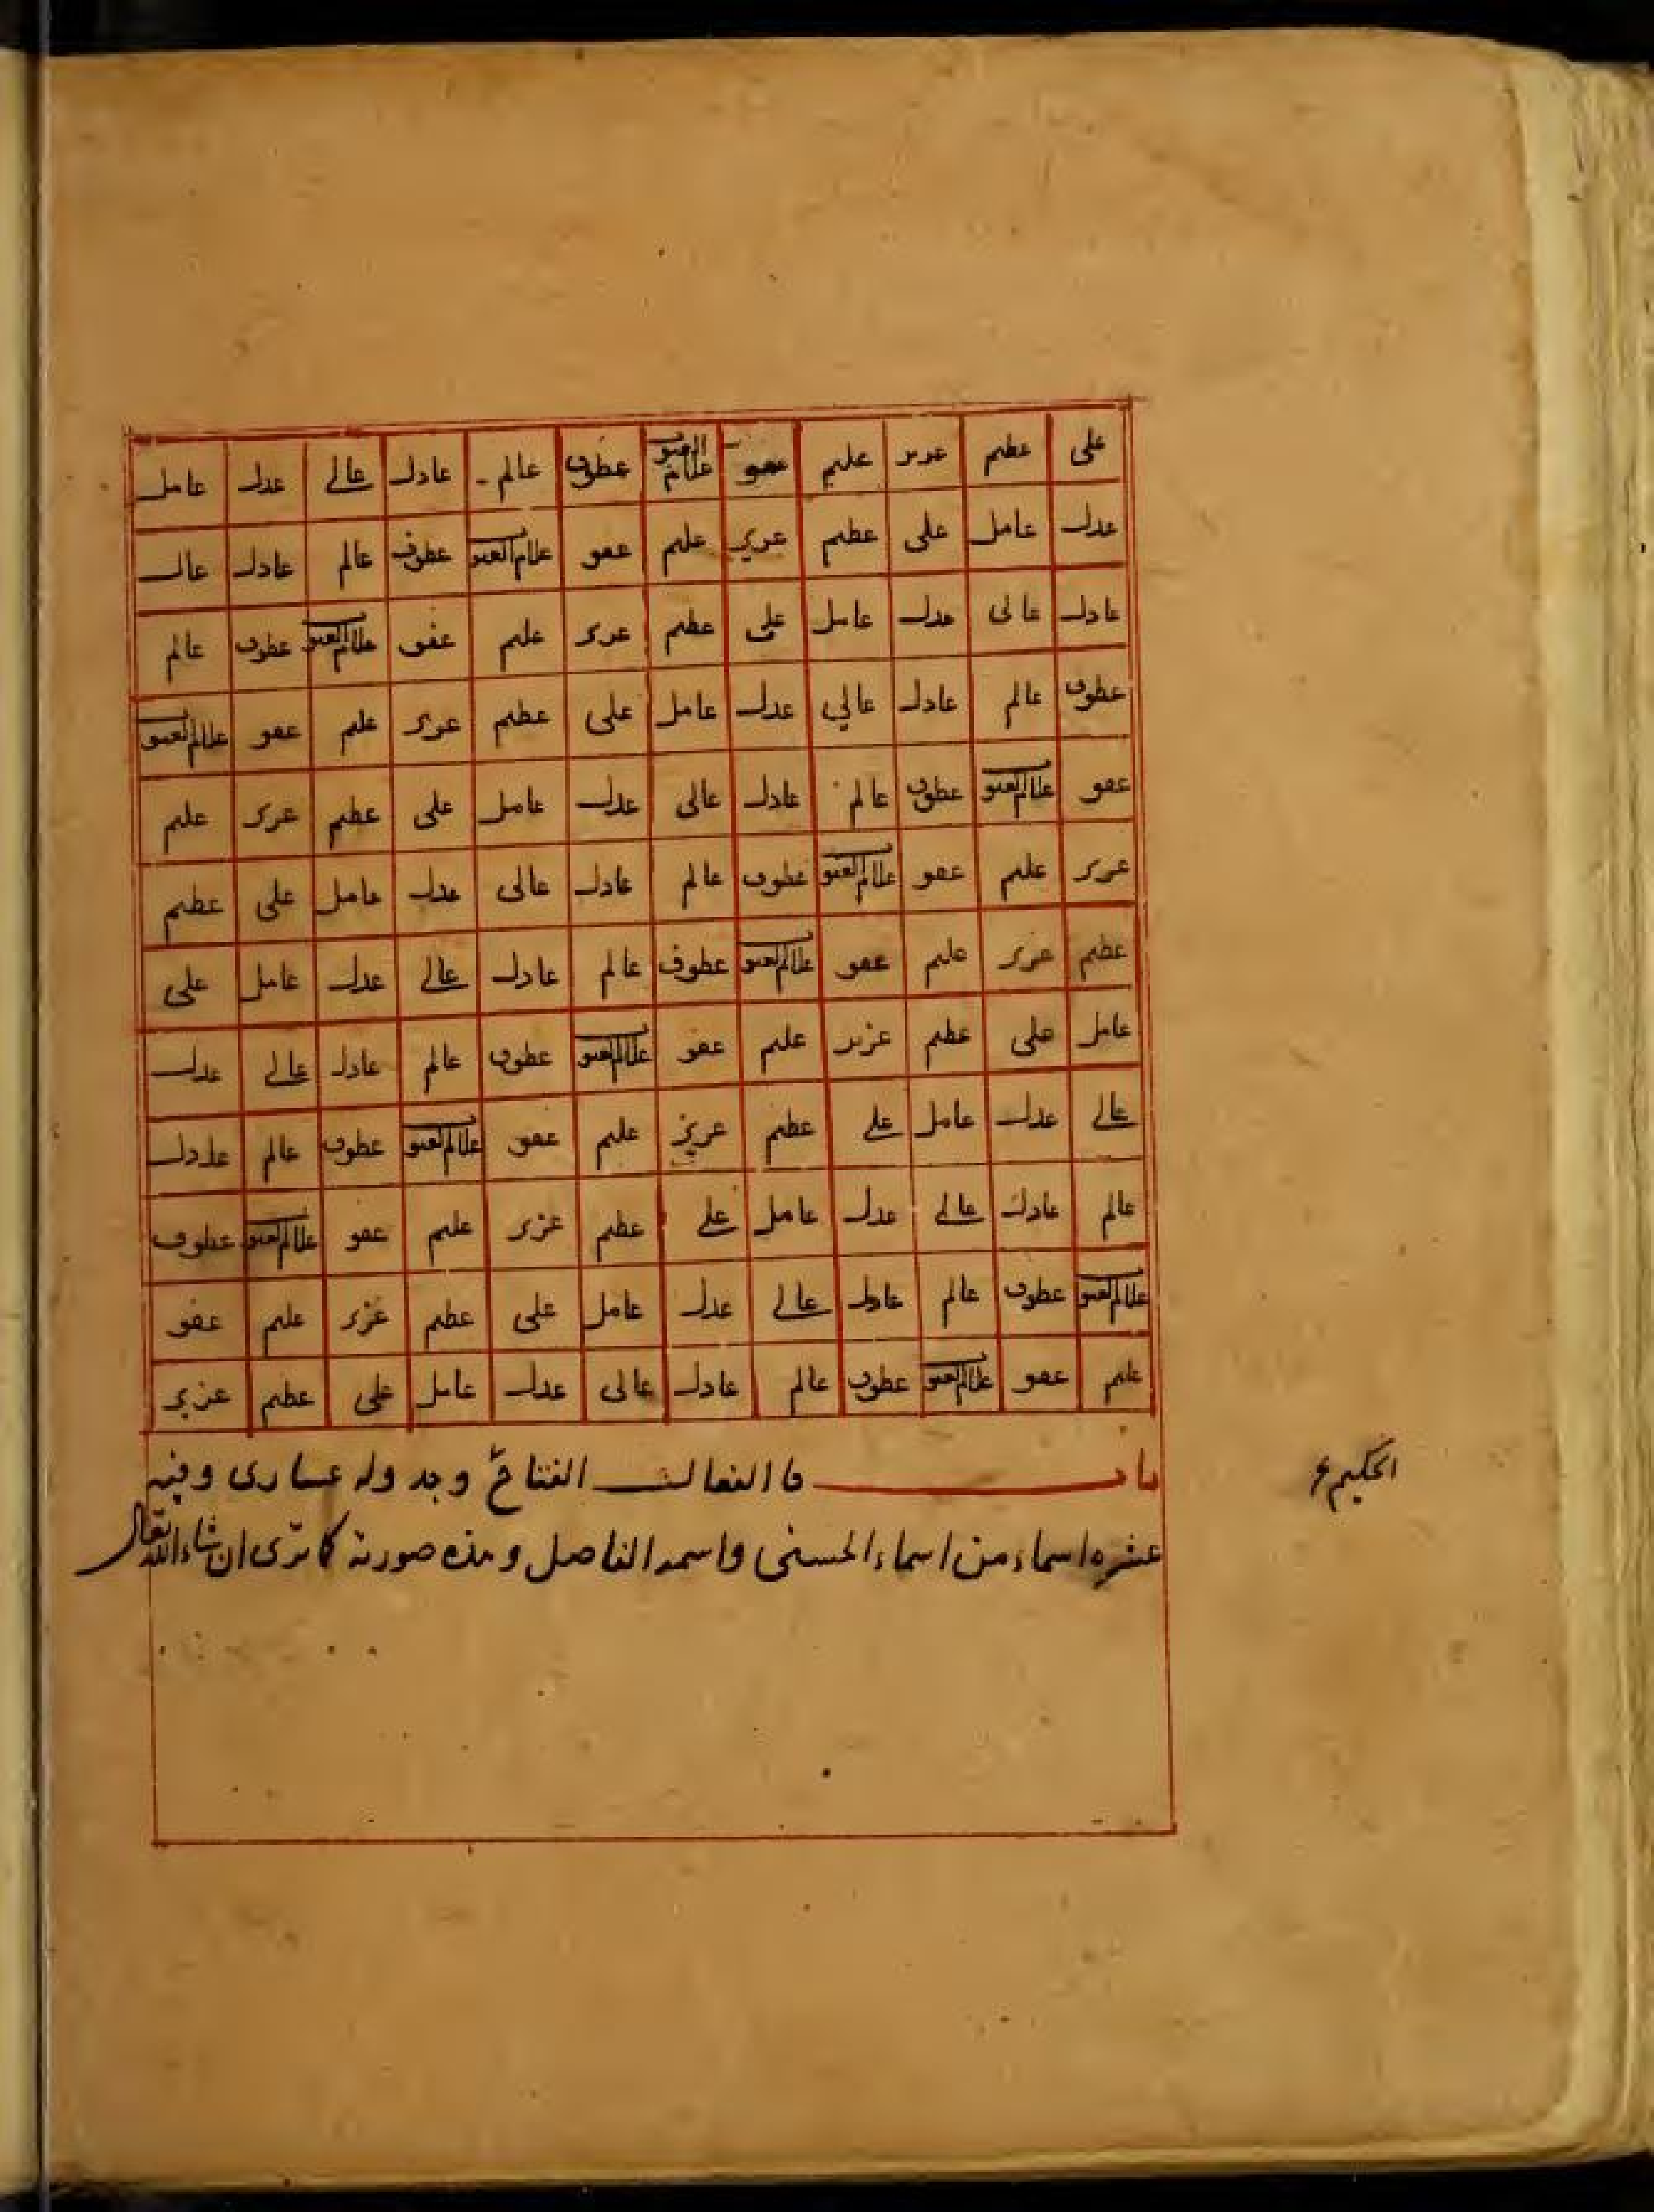 على عظم عزيز عليم عفو علام الغيو عطوف عالم عادل عالے عدل عامل
عدل عامل على عظم عزيز عليم عفو علام الغيو عطوف عالم عادل عال
عادل عالى عدل عامل على عظم عزيز عليم عفو علام الغيو عطوف عالم
عطوف عالم عادل عالي عدل عامل على عظم عزيز عليم عفو علام الغيو
عفو علام الغيو عطوف عالم عادل عالى عدل عامل على عظم عزيز عليم
عزيز عليم عفو علام الغيو عطوف عالم عادل عالى عدل عامل على عظم
عظم عزيز عليم عفو علام الغيو عطوف عالم عادل عالے عدل عامل على
عامل على عظم عزيز عليم عفو علام الغيو عطوف عالم عادل عالے عدل
عالے عدل عامل علے عظم عزيز عليم عفو علام الغيو عطوف عالم عادل
عالم عادل عالے عدل عامل علے عظم عزيز عليم عفو علام الغيو عطوف
علام الغيو عطوف عالم عادل عالے عدل عامل على عظم عزيز عليم عفو
عليم عفو علام الغيو عطوف عالم عادل عالى عدل عامل على عظم عزيز
باب فا الفعال الفتاح وجدوله عسارى وفيه
عشره اسماء من اسماء الحسنى واسمه الفاصل وهذه صورته كما ترى ان شاء الله تعال
الحكيم ع